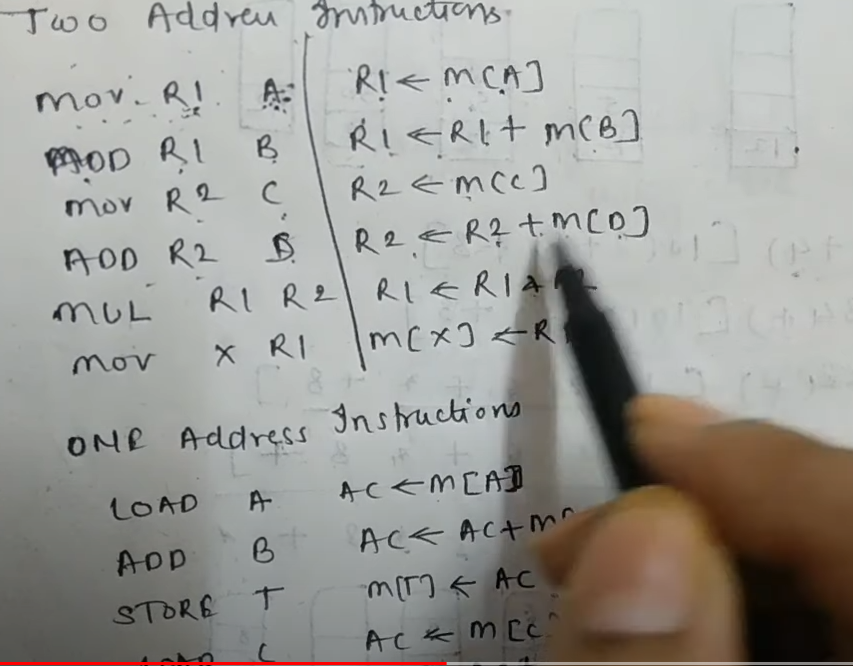 Two Addreu Instructions.
mov. R1 A R1 ← M[A]
ADD R1 B R1 ← R1 + M[B]
mov R2 C R2 ← M[C]
ADD R2 D R2 ← R2 + M[D]
MUL R1 R2 R1 ← R1 * R2
mov X R1 M[X] ← R1
ONE Address Instructions
LOAD A AC ← M[A]
ADD B AC ← AC + M
STORE T M[T] ← AC
LOAD C AC ← M[C